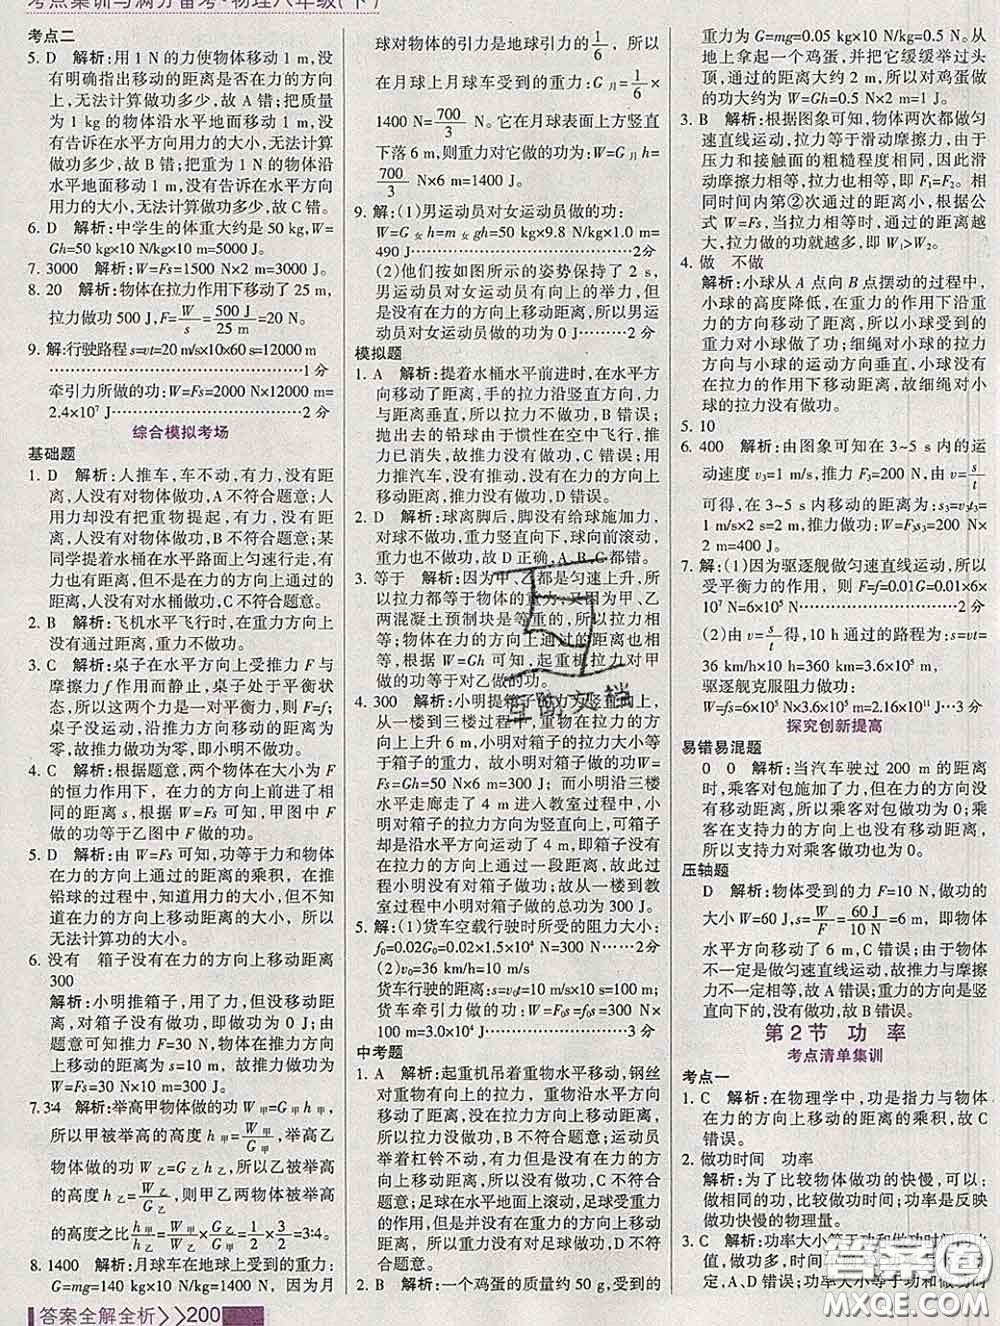 考点集训与满分备考·物理八年级(下)
考点二
5. D 解析:用1 N的力使物体移动1 m,没
有明确指出移动的距离是否在力的方向
上,无法计算做功多少,故A错;把质量
为1 kg的物体沿水平地面移动1 m,没
有告诉在水平方向用力的大小,无法计算
做功多少,故B错;把重为1 N的物体沿
水平地面移动1 m,没有告诉在水平方向
用力的大小,无法计算做功多少,故C错。
6. D 解析:中学生的体重大约是50 kg,W=
Gh=50 kg×10 N/kg×10 m=5000 J。
7. 3000 解析:W=Fs=1500 N×2 m=3000 J。
8. 20 解析:物体在拉力作用下移动了25 m,
拉力做功500 J,F=W/s=500 J/25 m=20 N。
9. 解:行驶路程s=vt=20 m/s×10×60 s=12000 m
……1分
牵引力所做的功:W=Fs=2000 N×12000 m=
2.4×10⁷ J……2分
综合模拟考场
基础题
1. D 解析:人推车,车不动,有力,没有距
离,人没有对物体做功,A不符合题意;人
用力却没有把重物提起,有力,没有距
离,人没有对重物做功,B不符合题意;某
同学提着水桶在水平路面上匀速行走,有
力,但是没有在力的方向上通过的距
离,人没有对水桶做功,C不符合题意。
2. B 解析:飞机水平飞行时,在重力方向
没有通过距离,重力不做功。
3. C 解析:桌子在水平方向上受推力F与
摩擦力f作用而静止,桌子处于平衡状
态,所以这两个力是一对平衡力,则F=f;
桌子没运动,沿推力方向移动的距离为
零,故推力做功为零,即小明不做功。
4. C 解析:根据题意,两个物体在大小为F
的恒力作用下,在力的方向上前进了相
同的距离s,根据公式W=Fs可知,甲图中F
做的功等于乙图中F做的功。
5. D 解析:由W=Fs可知,功等于力和物体
在力的方向上通过的距离的乘积,在推
铅球的过程中,力的大小已知,但不知
道在力的方向上移动的距离大小,所以
无法计算功的大小。
6. 没有 箱子没有在力的方向上移动距离
300
解析:小明推箱子,用了力,但没移动距
离,对箱子没有做功,即做功为0 J;由
于推力F=30 N,在推力作用下,箱子沿水
平方向移动的距离为s=10 m,故推力做功
为W=Fs=30 N×10 m=300 J。
7. 3∶4 解析:举高甲物体做的功W甲=G甲h甲,
所以甲被举高的高度h甲=W甲/G甲,举高乙
物体做的功W乙=G乙h乙,所以乙被举高的
高度h乙=W乙/G乙,则甲乙两物体被举高
的高度之比h甲/h乙=W甲/G甲×G乙/W乙=1/2×3/2=3∶4。
8. 1400 解析:月球车在地球上受到的重力:
G=mg=140 kg×10 N/kg=1400 N,因为月
球对物体的引力是地球引力的1/6,所以
在月球上月球车受到的重力:G月=1/6×
1400 N=700/3 N。它在月球表面上方竖直
下落6 m,则重力对它做的功为:W=G月h=
700/3 N×6 m=1400 J。
9. 解:(1)男运动员对女运动员做的功:
W=G女h=m女gh=50 kg×9.8 N/kg×1.0 m=
490 J……2分
(2)他们按如图所示的姿势保持了2 s,
男运动员对女运动员有向上的举力,但
是没有在力的方向上移动距离,所以男运
动员对女运动员做的功为0 J……2分
模拟题
1. A 解析:提着水桶水平前进时,在水平方
向移动了距离,手的拉力沿竖直方向,
力与距离垂直,所以拉力不做功,B错误;
抛出去的铅球由于惯性在空中飞行,推
力已消失,故推力没有做功,C错误;用
力推汽车,没有推动,汽车没有在力的方
向移动距离,推力没有做功,D错误。
2. D 解析:球离脚后,脚没有给球施加力,
对球不做功,重力竖直向下,球向前滚动,
重力也不做功,故D正确,A、B、C都错。
3. 等于 解析:因为甲、乙都是匀速上升,所
以拉力都等于物体的重力,又因为甲、乙
两混凝土预制块是等重的,所以拉力相
等,物体在力的方向上上升的高度也相
等,根据W=Gh可知,起重机拉力对甲
做的功等于对乙做的功。
4. 300 解析:小明提箱子的力方竖直向上,
从一楼到三楼过程中,重物在竖直方向
上升了6 m,小明对箱子的拉力大小大于
等于箱子的重力,所以小明对箱子做功:W=
Fs=Gh=50 N×6 m=300 J;而小明沿三楼
水平走廊走了4 m进入教室过程中,小
明对箱子的拉力方向为竖直向上,可箱子
却是沿水平方向运动了4 m,箱子没有
在拉力的方向上通过一段距离,所以此过
程小明没有对箱子做功;故从一楼到教
室过程中,小明对箱子做的总功为300 J。
5. 解:(1)货车空载行驶时所受的阻力:
f₀=0.02G₀=0.02×1.5×10⁴ N=300 N……2分
(2)v₀=36 km/h=10 m/s
货车行驶的距离:s=v₀t=10 m/s×10 s=100 m;
货车牵引力做的功:W=F₀s=f₀s=300 N×
100 m=3.0×10⁴ J……3分
中考题
1. A 解析:起重机吊着重物水平移动,钢丝
对重物有向上的拉力,重物沿水平方向
移动了距离,但在力的方向上没有移动距
离,所以没有做功,B不符合题意;运动员
举着杠铃不动,有力,没有距离,C不符
合题意;足球在水平地面上滚动,足球受
重力的作用,但没有在重力的方向上移动
距离,所以重力没有对足球做功,D不符
合题意。
2. B 解析:一个鸡蛋的质量约50 g,受到的
重力为G=mg=0.05 kg×10 N/kg=0.5 N。从
地上拿起一个鸡蛋,并把它缓缓举过头
顶,通过的距离大约2 m,所以对鸡蛋做
的功大约为W=Gh=0.5 N×2 m=1 J。
3. B 解析:根据图象可知,物体两次都做匀
速直线运动,拉力等于滑动摩擦力,由于
压力和接触面的粗糙程度相同,因此滑
动摩擦力相等,拉力也相等,即F₁=F₂。相
同时间内第②次通过的距离小,根据公
式W=Fs,当拉力相等时,通过的距离越
大,拉力做的功就越多,即W₁>W₂。
4. 做 不做
解析:小球从A点向B点摆动的过程中,
小球的高度降低,在重力的作用下沿重
力的方向移动了距离,所以小球受到的
重力对小球做了功;细绳对小球的拉力
方向与小球的运动方向垂直,小球没有
在拉力的方向上移动距离,故细绳对小
球的拉力没有做功。
5. 10
6. 400 解析:由图象可知在3~5 s内的运
动速度v₃=1 m/s,推力F₃=200 N,由v=s/t
可得,在3~5 s内移动的距离为:s₃=v₃t₃=
1 m/s×2 s=2 m;推力做功:W=F₃s₃=200 N×
2 m=400 J。
7. 解:(1)因为驱逐舰做匀速直线运动,所以
受平衡力的作用,则F=f=0.01G=0.01×6×
10⁷ N=6×10⁵ N……2分
(2)由v=s/t得,10 h通过的路程为:s=vt=
36 km/h×10 h=360 km=3.6×10⁵ m,
驱逐舰克服阻力做功:
W=f₀s=6×10⁵ N×3.6×10⁵ m=2.16×10¹¹ J…3分
探究创新提高
易错易混题
0 0 解析:当汽车驶过200 m的距离
时,乘客对包施加了力,但是没有在力的
方向移动距离,所以乘客对包做功为0;乘
客在支持力的方向上也没有移动距离,
所以支持力做功也为0。
压轴题
D 解析:物体受到的力F=10 N,做功的
大小W=60 J,s=W/F=60 J/10 N=6 m,即物体
水平方向移动了6 m,C错误;由于物体
不一定是做匀速直线运动,故推力与摩擦
力不一定相等,故A错误;重力的方向是竖
直向下的,没有做功,故B错误。
第2节 功 率
考点清单集训
考点一
1. C 解析:在物理学中,功是指力与物体
在力的方向上移动的距离的乘积,故C
错误。
2. 做功时间 功率
解析:为了比较物体做功的快慢,可以
做相同的功,比较做功时间;功率是反映
做功快慢的物理量。
3. C 解析:功率大小等于功和做功时间的大
答案全解全析>>200
互動文档
答案圈
MXQE.COM